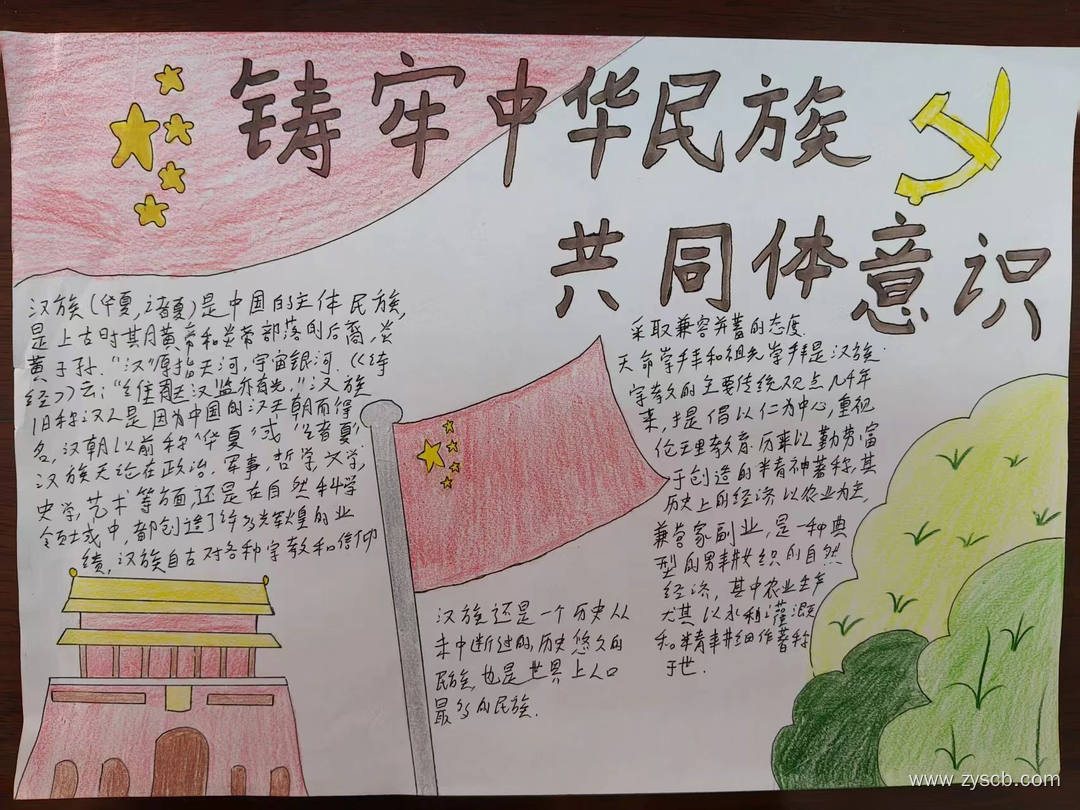 铸牢中华民族
共同体意识
汉族(华夏,诸夏)是中国的主体民族,
是上古时期黄帝和炎帝部落的后裔,炎
黄子孙."汉"原指天河,宇宙银河.《诗
经》云:"维天有汉,监亦有光."汉族
旧称汉人是因为中国的汉王朝而得
名,汉朝以前称"华夏"或"诸夏".
汉族无论在政治,军事,哲学,文学,
史学,艺术等方面,还是在自然科学
领域中,都创造了许多辉煌的业
绩,汉族自古对各种宗教和信仰
采取兼容并蓄的态度.
天命崇拜和祖先崇拜是汉族
宗教的主要传统观点几千年
来,于是倡以仁为中心,重视
伦理教育.历来以勤劳富
于创造的精神著称.其
历史上的经济以农业为主,
兼营家副业,是一种典
型的男耕女织的自然
经济,其中农业生产
尤其以水利灌溉
和精耕细作著称
于世.
汉族还是一个历史从
未中断过的,历史悠久的
民族,也是世界上人口
最多的民族.
www.zyscb.com